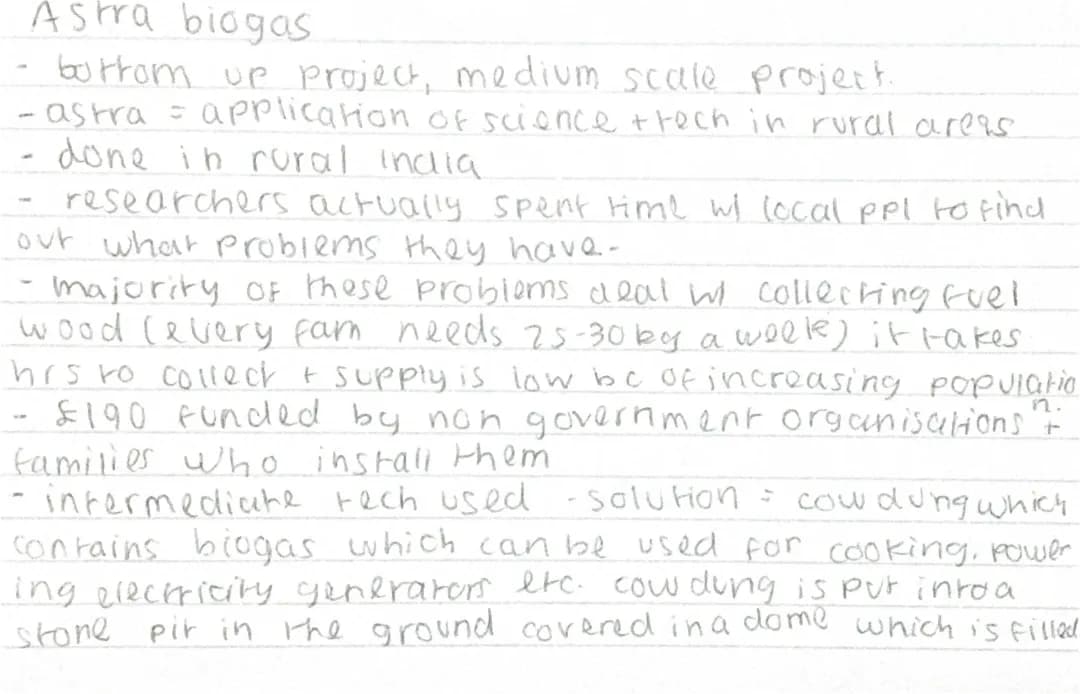 Astra biogas
- bottom up project, medium scale project.
- astra = application of science + tech in rural areas
- done in rural india
- researchers actually spent time w/ local ppl to find
out what problems they have-
- majority of these problems deal w/ collecting fuel
wood (every fam needs 25-30kg a week) it takes
hrs to collect + supply is low bc of increasing populatio
n.
- £190 funded by non government organisations +
families who install them
- intermediate tech used - solution = cow dung which
contains biogas which can be used for cooking, power
ing electricity generators etc. cow dung is put into a
stone pit in the ground covered in a dome which is filled